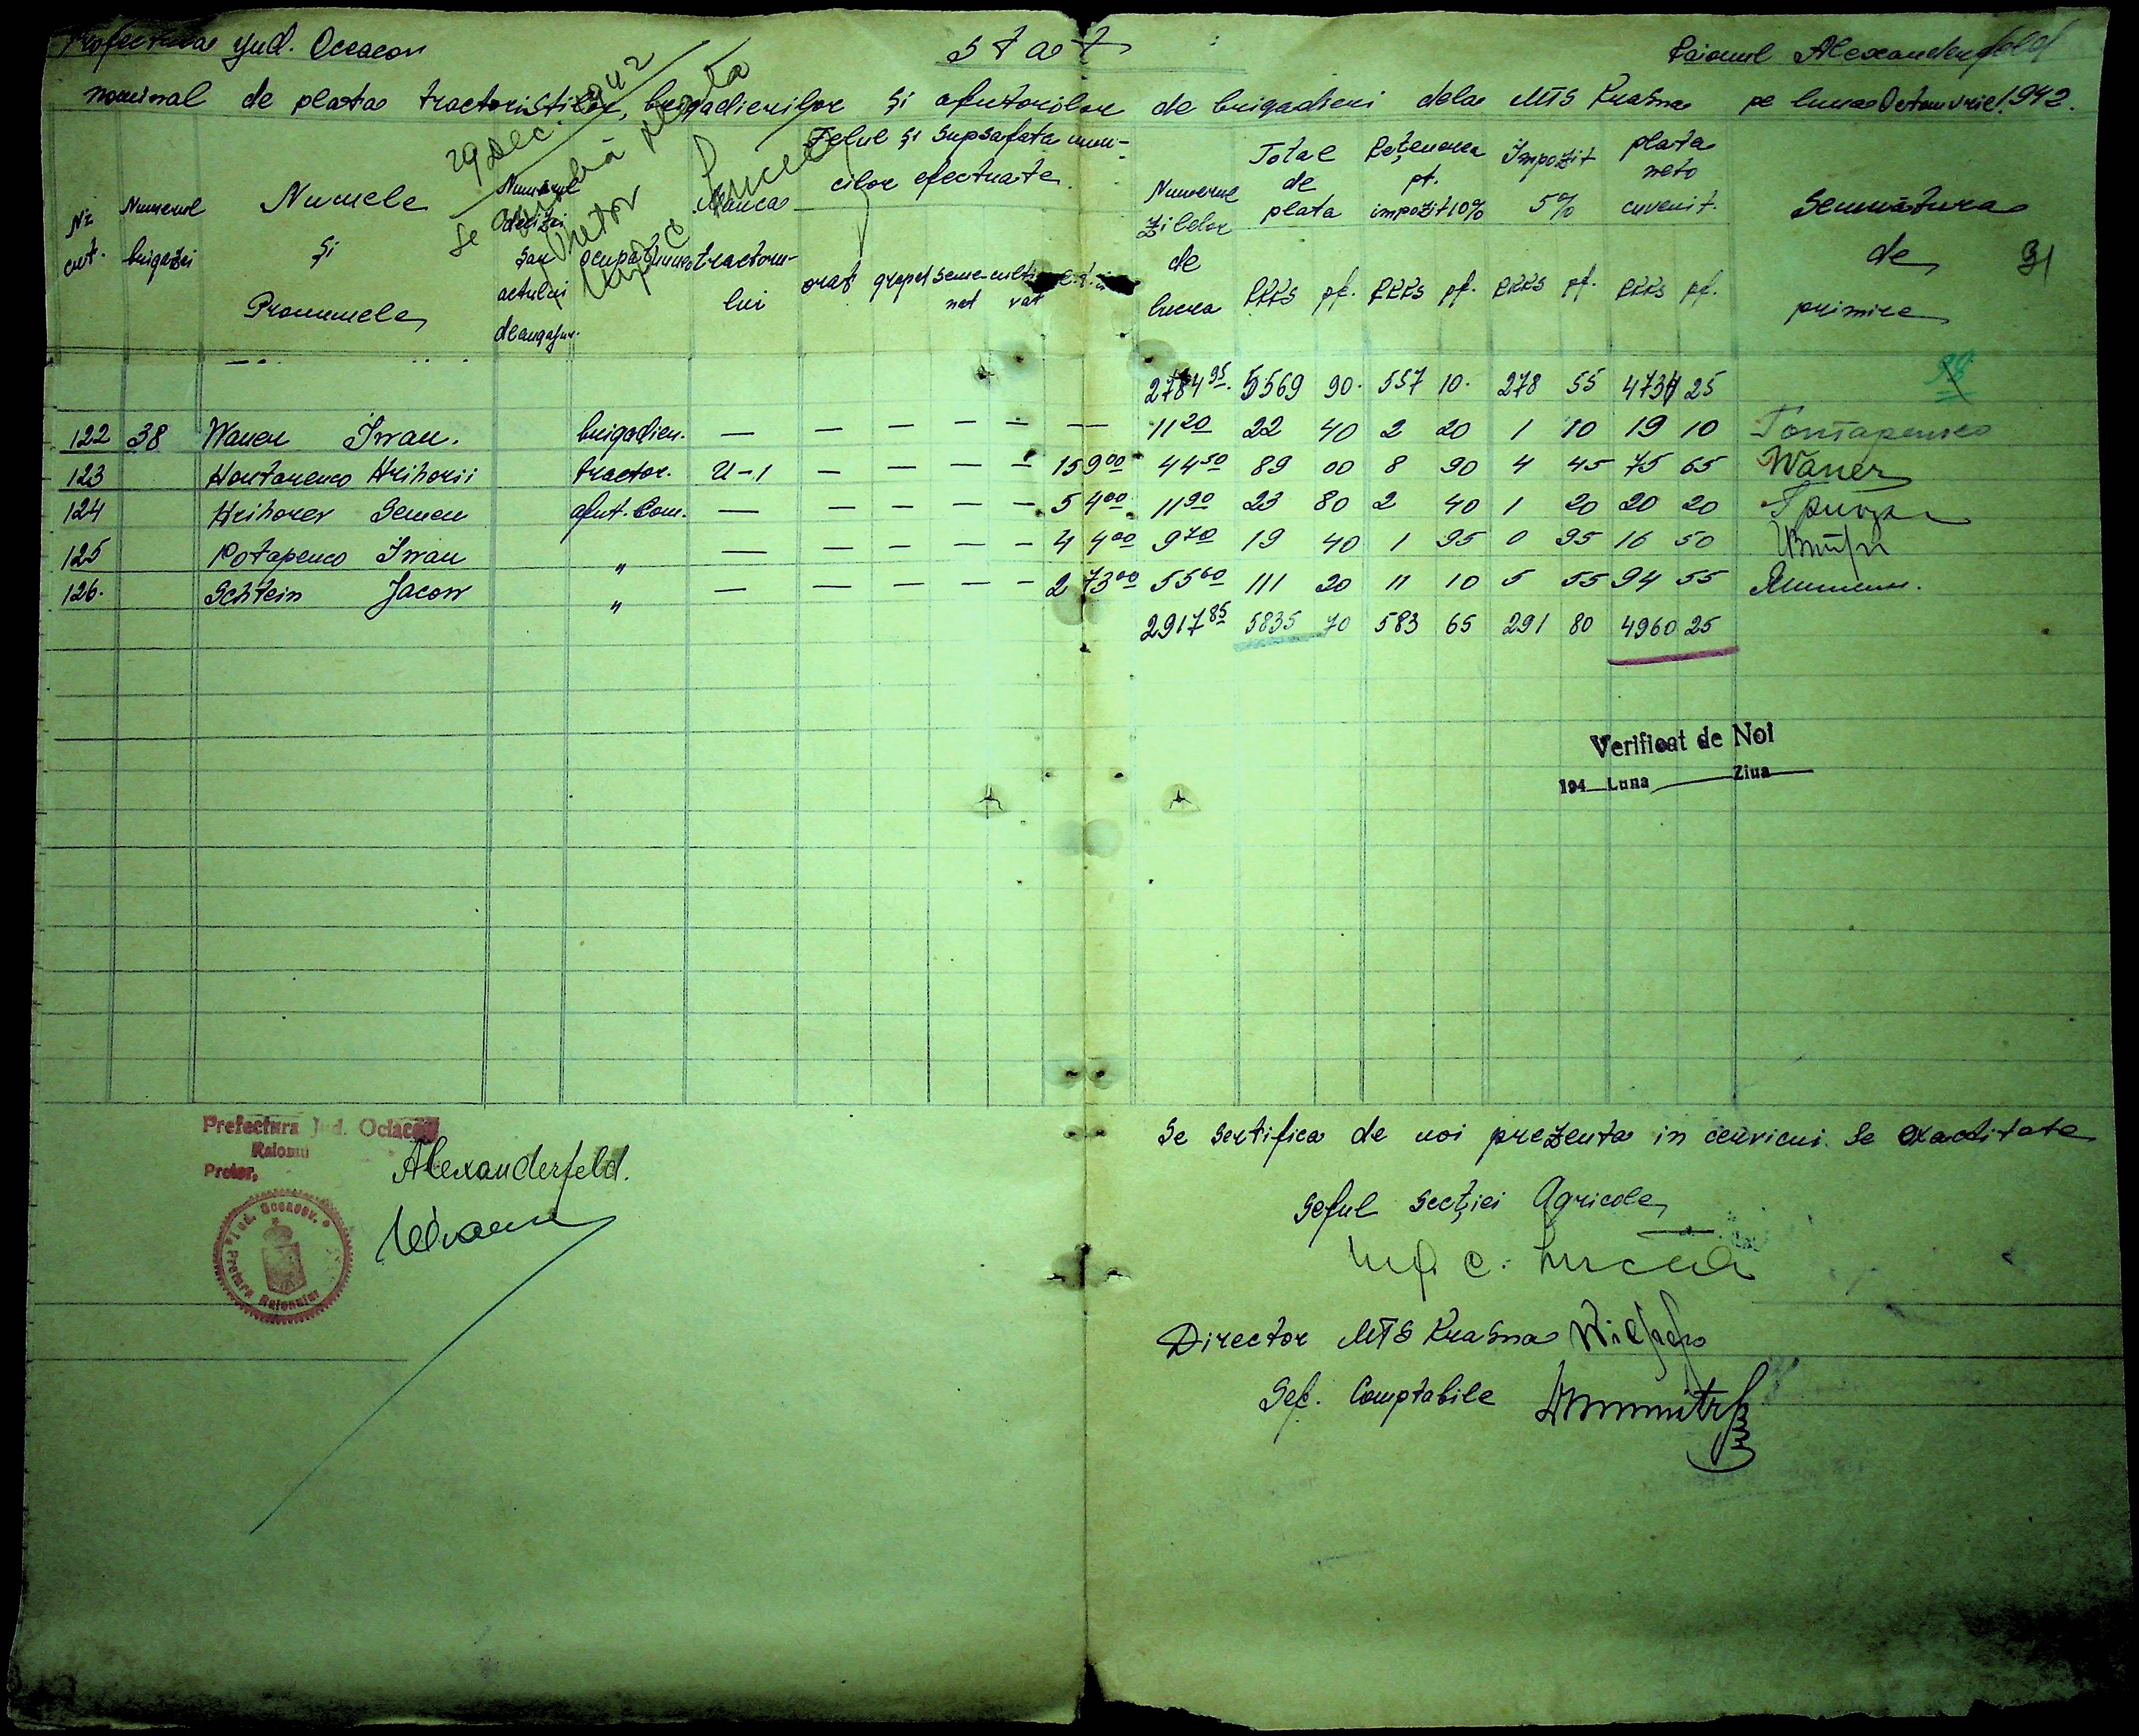 Prefectura jud. Oceacov Stat Raionul Alexanderfeld
nominal de plata tractoristilor, brigadierilor și ajutorilor de brigadieri dela MTS Krasna pe luna Octomvrie 1942.
29 Dec. 1942
Se aprobă plata
Pretor
Nr crt.
Numerul brigăzei
Numele și Pronumele
Numărul deciziei sau actului de angajar.
ocupațiunea
Marca tractorului
Felul și supsafata muncilor efectuate
arat grapat semenat cultivat
Numerul zilelor de lucru
Total de plata RKKS pf.
Rețenerea pt. impozit 10% RKKS pf.
Impozit 5% RKKS pf.
plata neto cuvenit. RKKS pf.
Semnătura de primire
91
2784 95 5569 90 557 10 278 55 4734 25
122 38 Waner Iwan. brigadier. — — — — — — — 11 20 22 40 2 20 1 10 19 10
123 Hontarenco Hrihorii tractor. U-1 — — — — 159 00 44 50 89 00 8 90 4 45 75 65 Waner
124 Hrihorev Semen ajut. Com. — — — — — 54 00 11 90 23 80 2 40 1 20 20 20
125 Potapenco Iwan " — — — — — 44 00 9 70 19 40 1 95 0 95 16 50
126. Schtein Jacow " — — — — — 273 00 55 60 111 20 11 10 5 55 94 55
2917 85 5835 70 583 65 291 80 4960 25
Verificat de Noi
194 Luna Ziua
Prefectura Jud. Oceacov
Raionul Alexanderfeld.
Pretor,
Jud. Oceacov.
Pretura Raionului
Se sertifica de noi prezenta in cervicui se exactitate
Seful Secției Agricole
Ing. C.
Director MTS Krasna
Sef. Comptabile